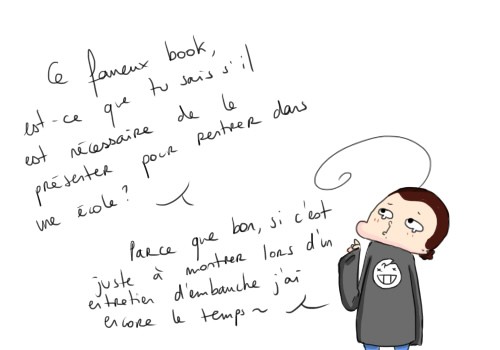 Ce fameux book,
est-ce que tu sais s'il
est nécessaire de le
présenter pour rentrer dans
une école?
Parce que bon, si c'est
juste à montrer lors d'un
entretien d'embauche j'ai
encore le temps~